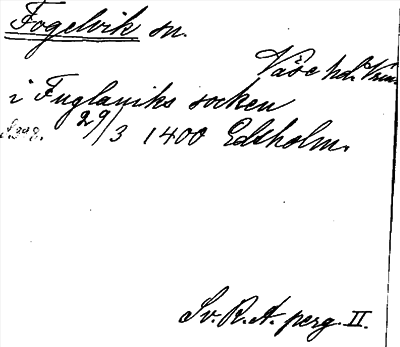 Fogelvik sn.
Väse hd. Vrm.
i Fuglauiks socken
29/3 1400 Edsholm.
Sv. R. A. perg. II.